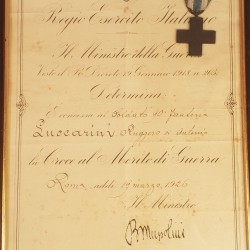 Regio Esercito Italiano
Il Ministro della Guerra
Visto il R.o Decreto 19 Gennaio 1918, n 205
Determina:
È concessa al Soldato
Luccarini Ruggero di Antonio
la Croce al Merito di Guerra
Roma addì 19 marzo, 1924
Il Ministro